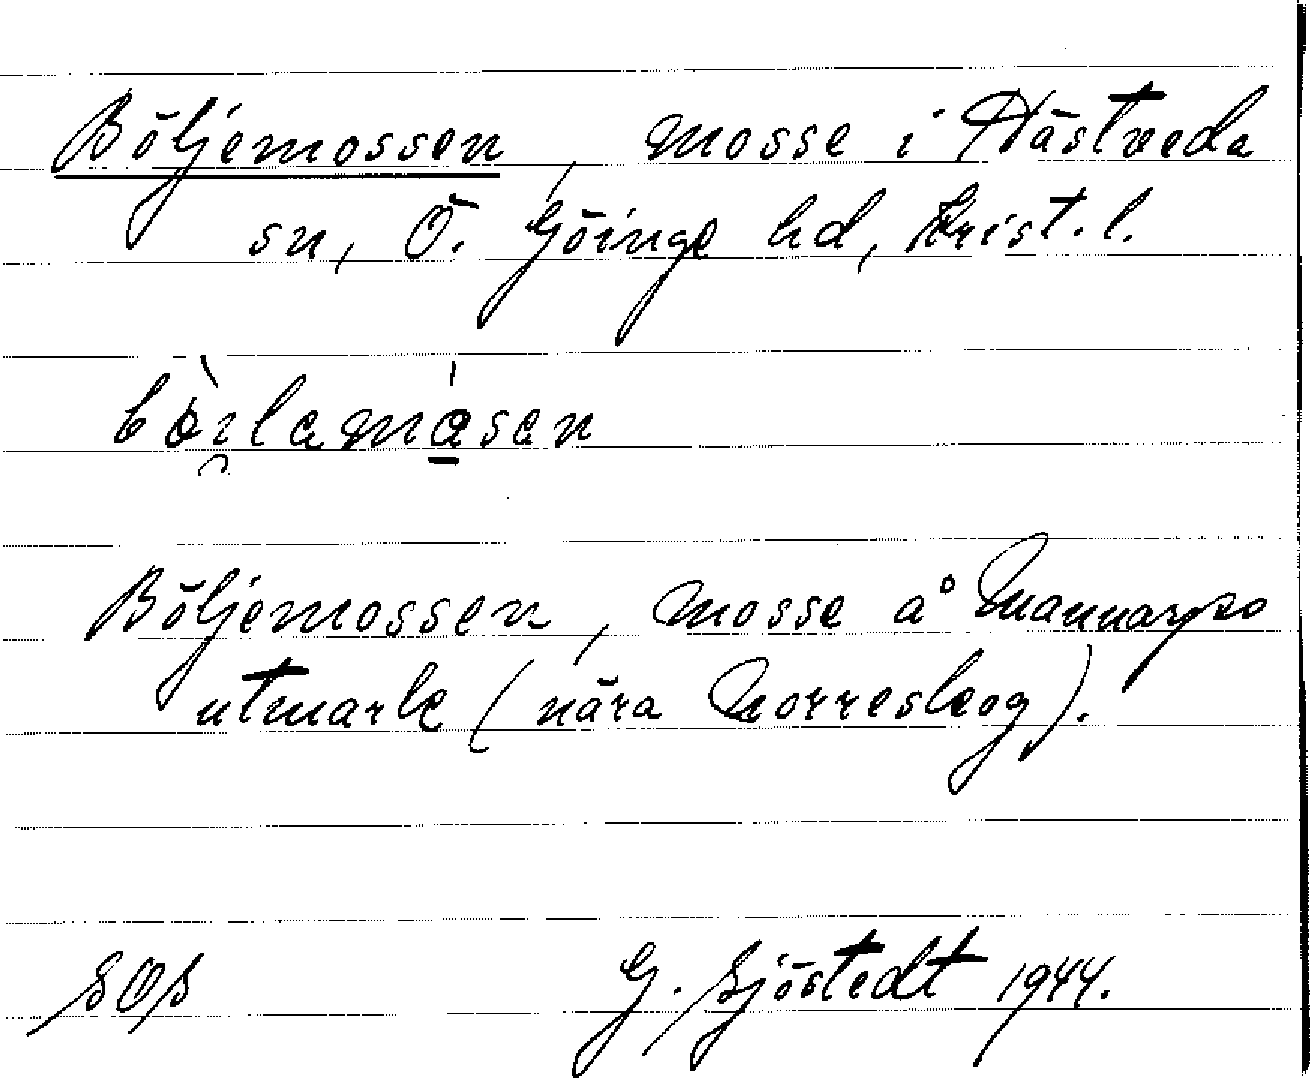 Böljemossen, mosse i Hästveda
sn, Ö. Göinge hd, Krist. l.
Böljemossen, mosse å Mannarps
utmark (nära Norreskog).
SOS G. Sjöstedt 1944.